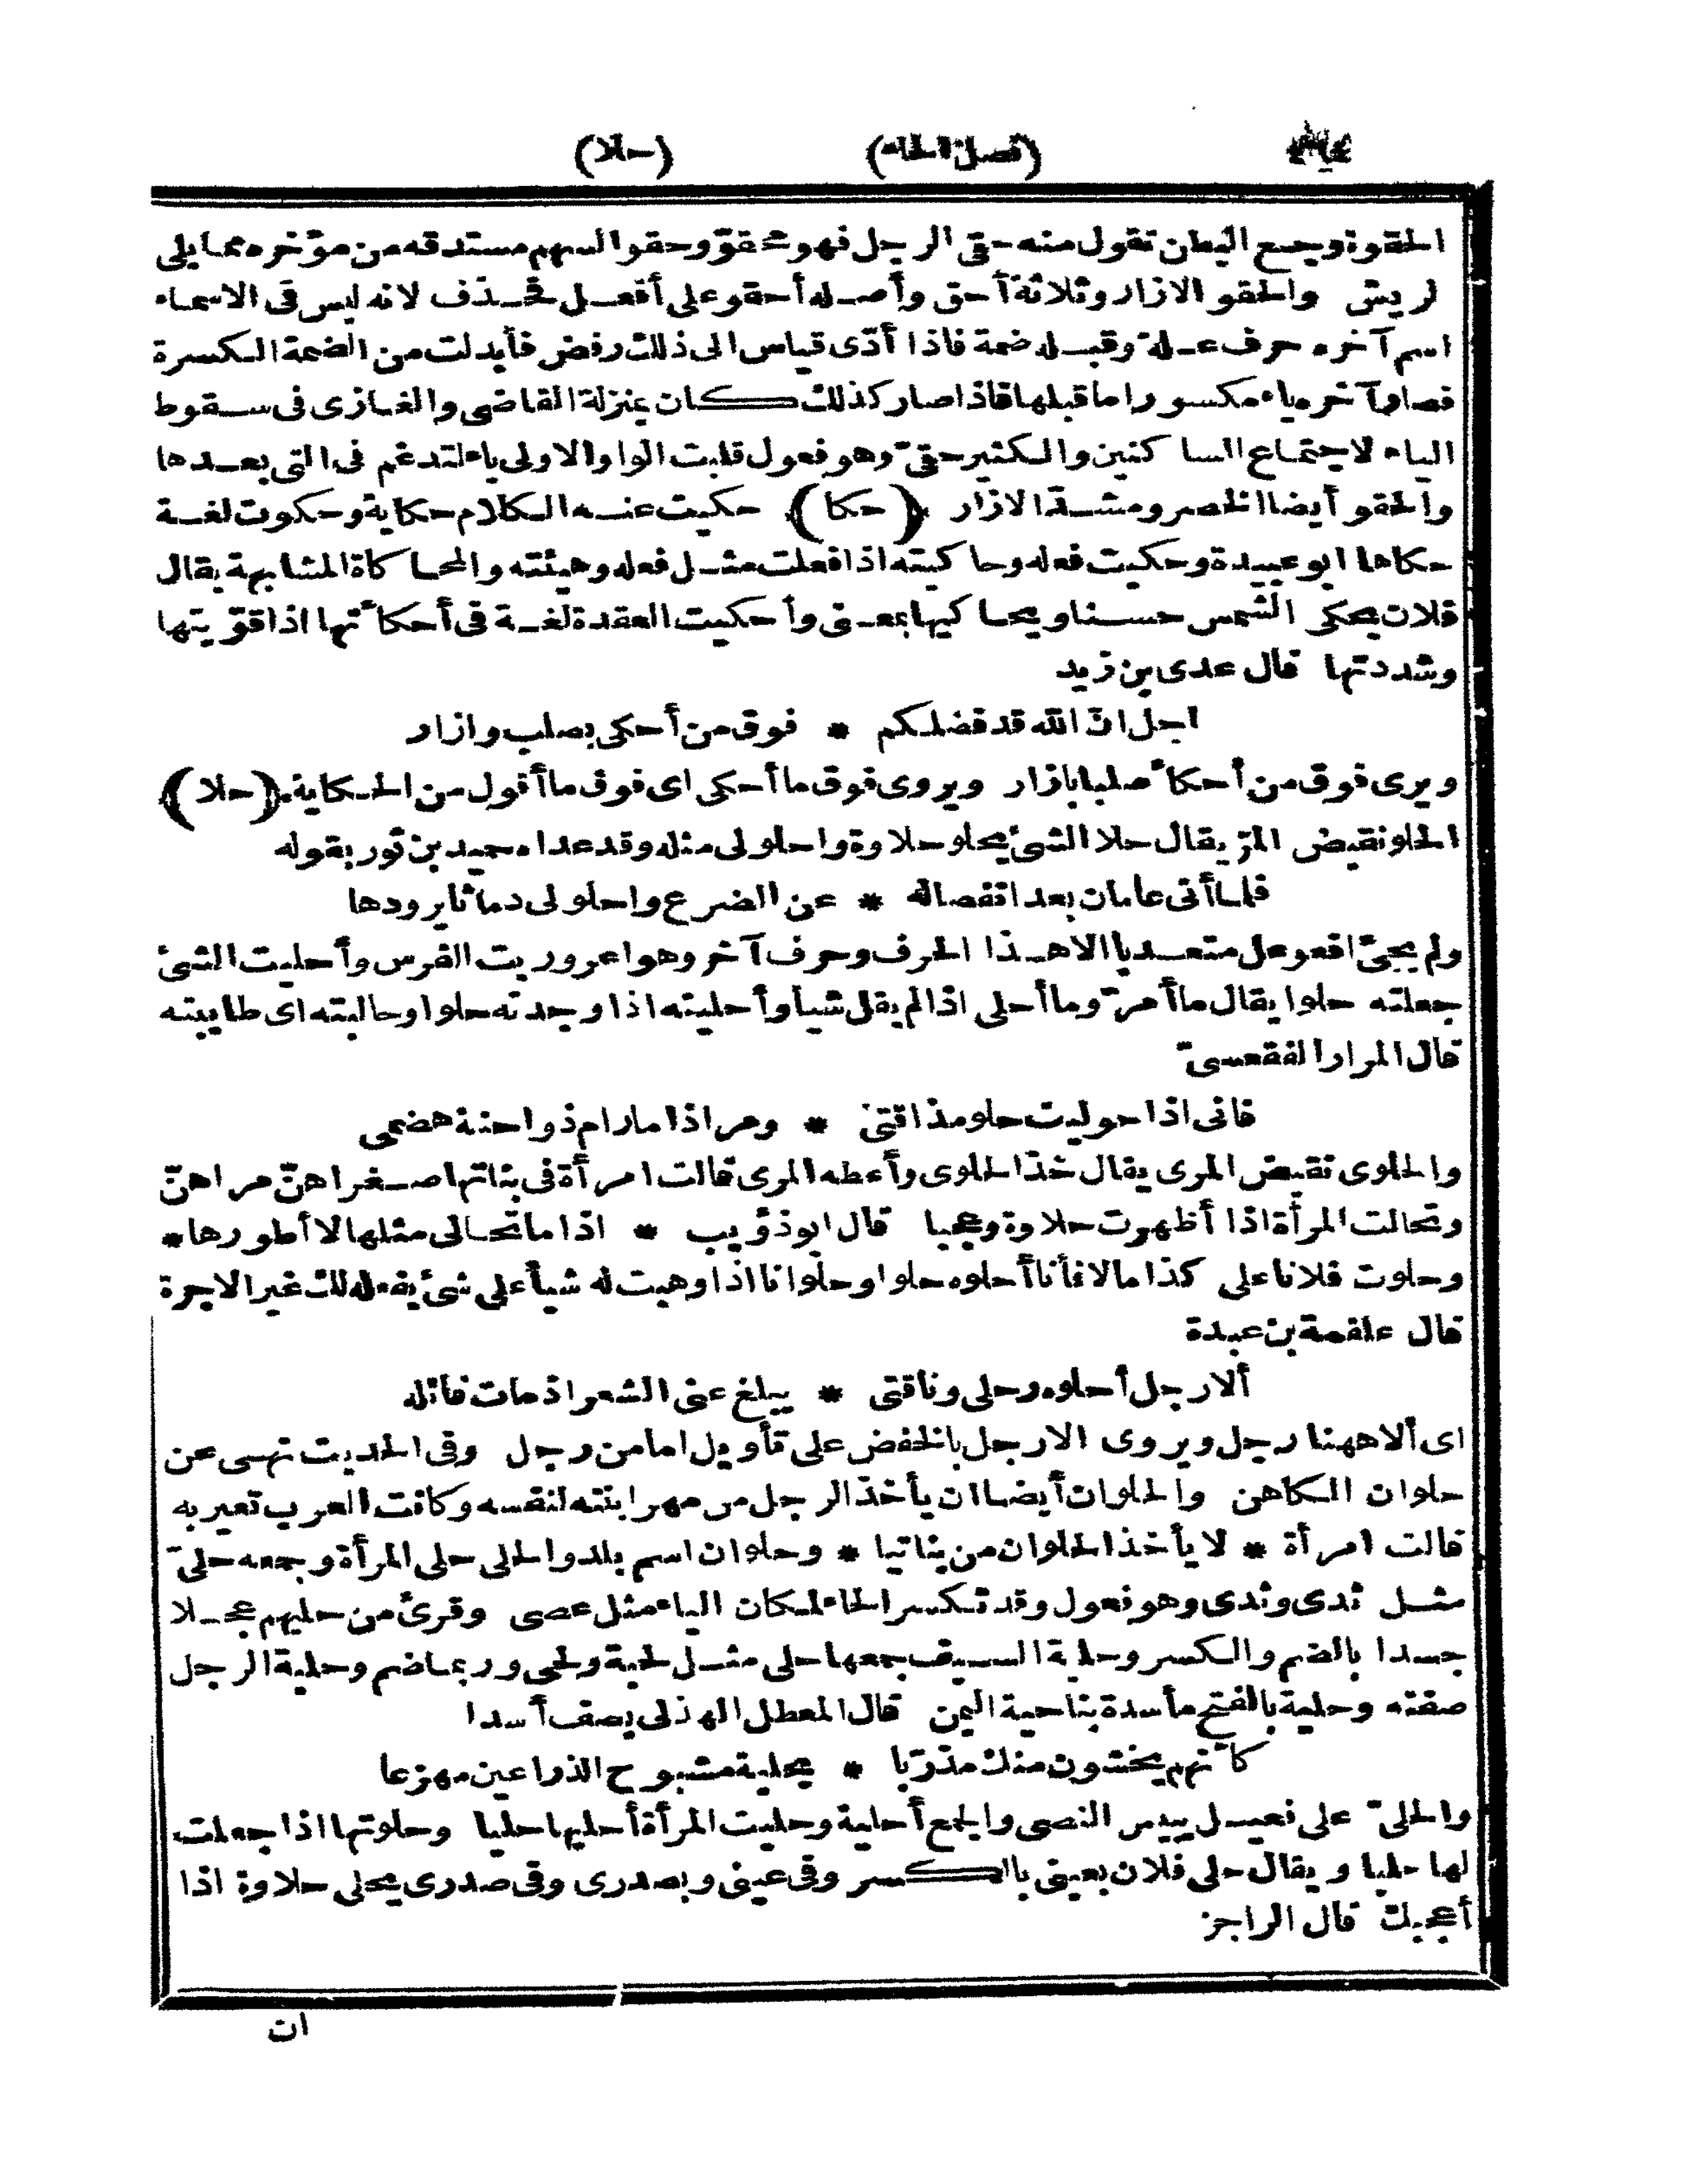 (فصل الحاء) (حلا)
الحقوة وجع البطن تقول منه حقى الرجل فهو محقوّ وحقو السهم مستدقه من مؤخره مما يلى
لريش والحقو الازار وثلاثة أحق وأصله أحقو على أفعل فحذف لانه ليس فى الاسماء
اسم آخره حرف علة وقبله ضمة فاذا أدّى قياس الى ذلك رفض فأبدلت من الضمة الكسرة
فصار آخره ياء مكسورا ما قبلها فاذا صار كذلك كان بمنزلة القاضى والغازى فى سقوط
الياء لاجتماع الساكنين والكثير حقىّ وهو فعول قلبت الواو الاولى ياء لتدغم فى التى بعدها
والحقو أيضا الخصر ومشدّ الازار (حكا) حكيت عنه الكلام حكاية وحكوت لغة
حكاها ابو عبيدة وحكيت فعله وحاكيته اذا فعلت مثل فعله وهيئته والمحاكاة المشابهة يقال
فلان يحكى الشمس حسنا ويحاكيها بمعنى وأحكيت العقدة لغة فى أحكأتها اذا قوّيتها
وشددتها قال عدى بن زيد
اجل انّ الله قد فضلكم * فوق من أحكى بصلب وازار
ويرى فوق من أحكأ صلبا بازار ويروى فوق ما أحكى اى فوق ما أقول من الحكاية (حلا)
الحلو نقيض المرّ يقال حلا الشئ يحلو حلاوة واحلولى مثله وقد عداه حميد بن ثور بقوله
فلما أتى عامان بعد انفصاله * عن الضرع واحلولى دماثا يرودها
ولم يجئ افعوعل متعديا الا هذا الحرف وحرف آخر وهو اعروريت الفرس وأحليت الشئ
جعلته حلوا يقال ما أمرّ وما أحلى اذا لم يقل شيأ وأحليته اذا وجدته حلوا وحاليته اى طايبته
قال المرار الفقعسىّ
فانى اذا حوليت حلو مذاقتى * ومر اذا ما رام ذو احنة هضمى
والحلوى نقيض المرى يقال خذ الحلوى وأعطه المرى قالت امرأة فى بناتها صغراهنّ مراهنّ
وتحالت المرأة اذا أظهرت حلاوة وعجبا قال ابو ذؤيب * اذا ما تحالى مثلها لا أطورها *
وحلوت فلانا على كذا مالا فأنا أحلوه حلوا وحلوانا اذا وهبت له شيأ على شئ يفعله لك غير الاجرة
قال علقمة بن عبدة
ألا رجل أحلوه رحلى وناقتى * يبلغ عنى الشعر اذ مات قائله
اى ألا ههنا رجل ويروى الا رجل بالخفض على تأويل اما من رجل وفى الحديث نهى عن
حلوان الكاهن والحلوان أيضا ان يأخذ الرجل من مهر ابنته لنفسه وكانت العرب تعير به
قالت امرأة * لا يأخذ الحلوان من بناتيا * وحلوان اسم بلد والحلى حلى المرأة وجمعه حلىّ
مثل ثدى وثدى وهو فعول وقد تكسر الحاء لمكان الياء مثل عصى وقرئ من حليهم عجلا
جسدا بالضم والكسر وحلية السيف جمعها حلى مثل لحية ولحى وربما ضم وحلية الرجل
صفته وحلية بالفتح مأسدة بناحية اليمن قال المعطل الهذلى يصف أسدا
كأنهم يخشون منك مذرّبا * بحلية مشبوح الذراعين مهزعا
والحلىّ على فعيل يبيس النصى والجمع أحلية وحليت المرأة أحليها حليا وحلوتها اذا جعلت
لها حليا ويقال حلى فلان بعينى بالكسر وفى عينى وبصدرى وفى صدرى يحلى حلاوة اذا
أعجبك قال الراجز
ان